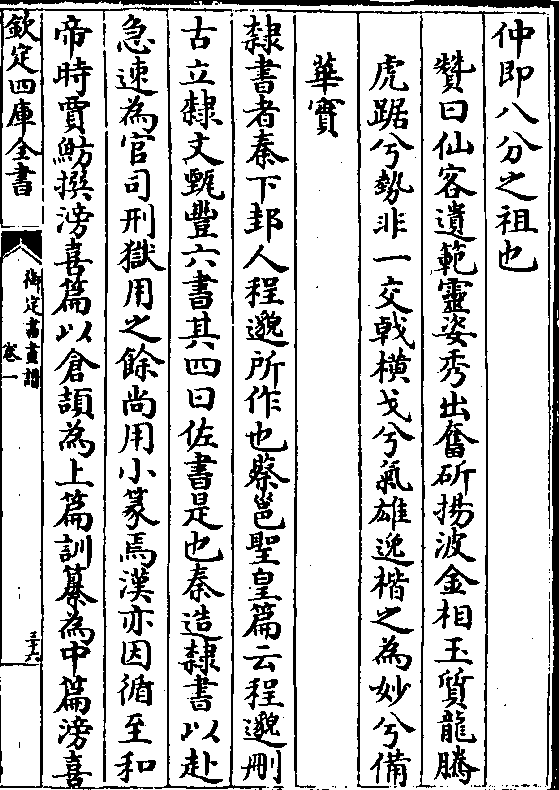 仲即八分之祖也
贊曰仙客遺範靈姿秀出奮斫揚波金相玉質龍騰
虎踞兮勢非一交戟橫戈兮氣雄逸楷之為妙兮備
華實
隸書者秦下邽人程邈所作也蔡邕聖皇篇云程邈刪
古立隸文甄豐六書其四曰佐書是也秦造隸書以赴
急速為官司刑獄用之餘尚用小篆焉漢亦因循至和
帝時賈魴撰滂喜篇以倉頡為上篇訓纂為中篇滂喜
欽定四庫全書
御定書畫譜
卷一
三十六